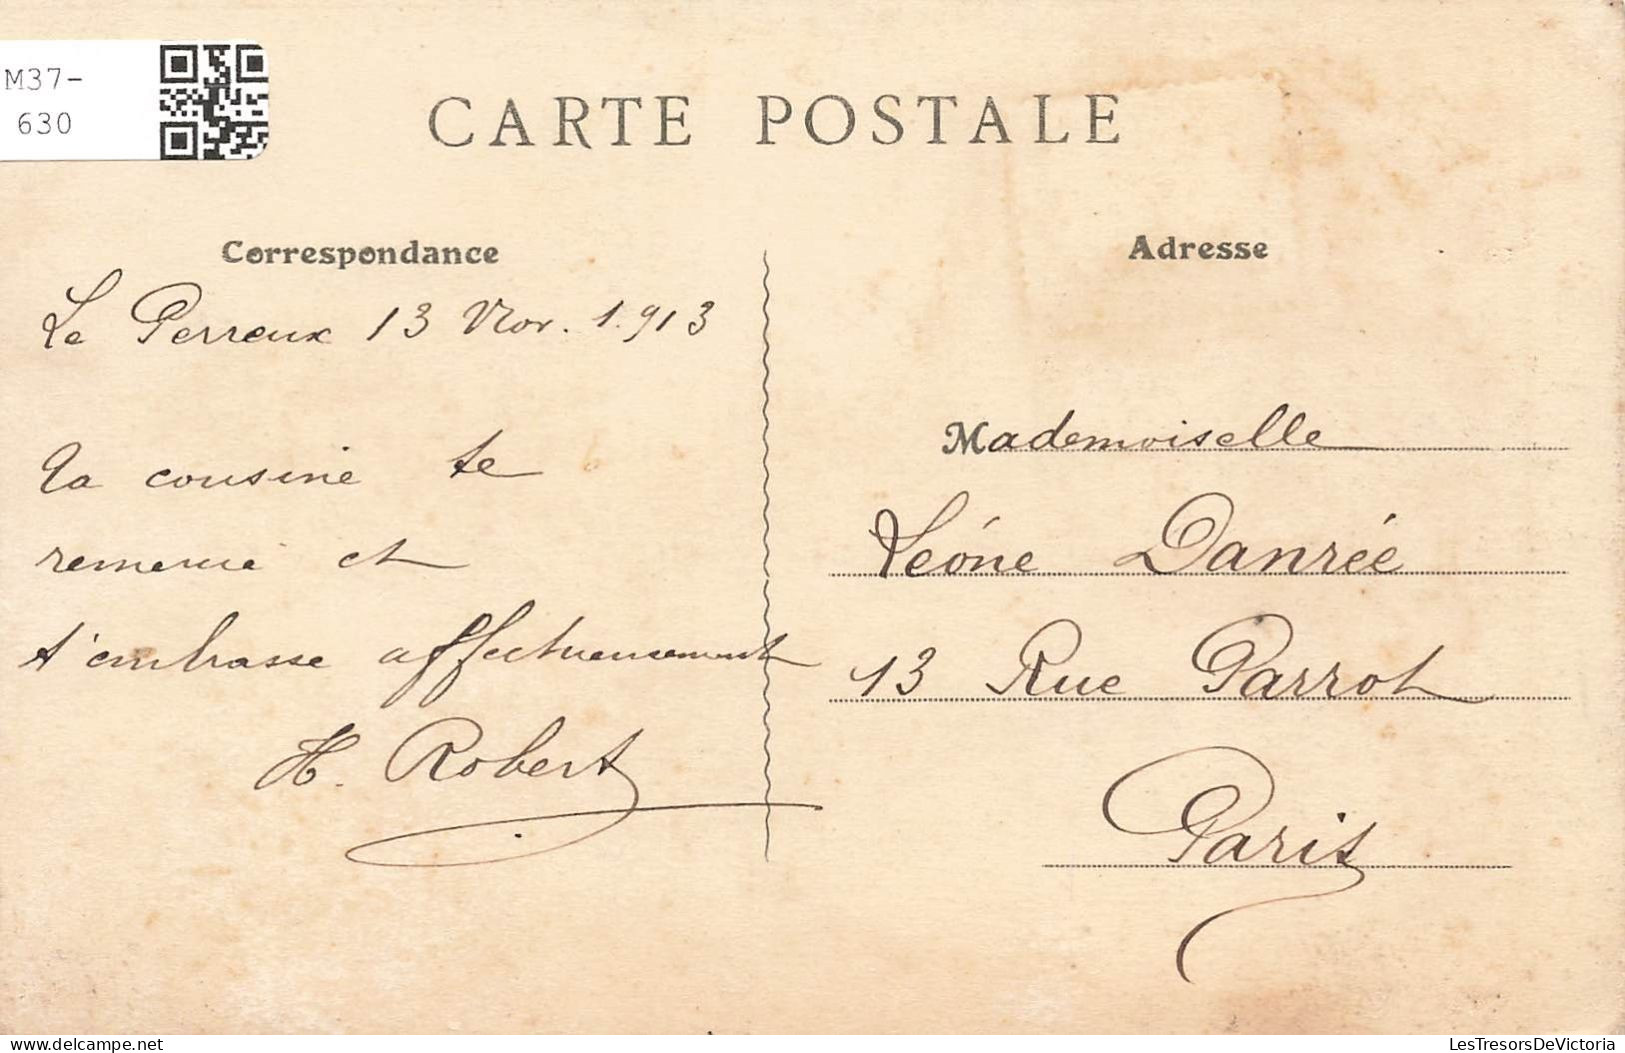 M37-
630
CARTE POSTALE
Correspondance
Le Perreux 13 Nov. 1.913
Ta cousine te
remercie et
t'embrasse affectueusement
H. Robert
Adresse
Mademoiselle
Léone Danrée
13 Rue Parrot
Paris
delcampe.net
LesTresorsDeVictoria